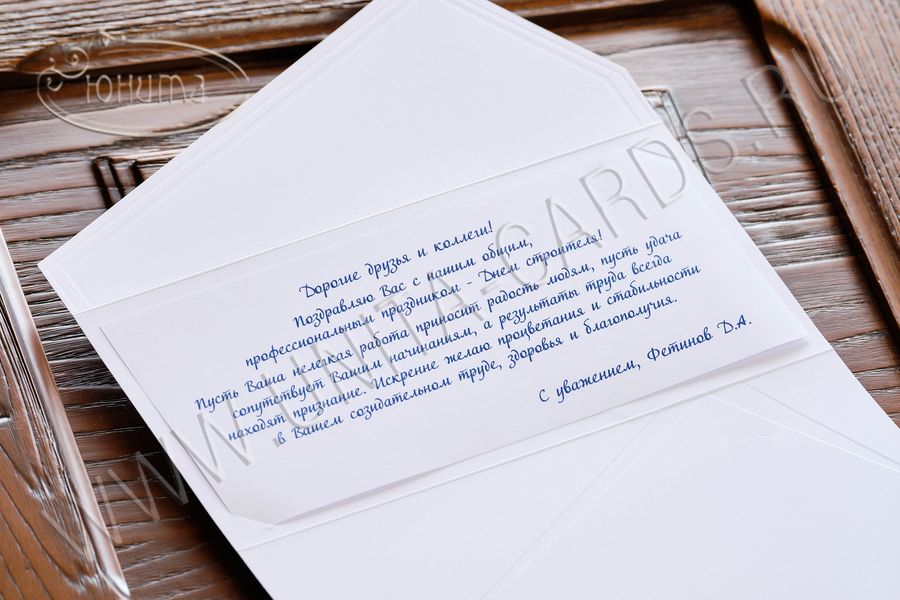 Юнита
WWW.UNITA-CARDS.RU
Дорогие друзья и коллеги!
Поздравляю Вас с нашим общим,
профессиональным праздником - Днем строителя!
Пусть Ваша нелегкая работа приносит радость людям, пусть удача
сопутствует Вашим начинаниям, а результаты труда всегда
находят признание. Искренне желаю процветания и стабильности
в Вашем созидательном труде, здоровья и благополучия.
С уважением, Фетинов Д.А.